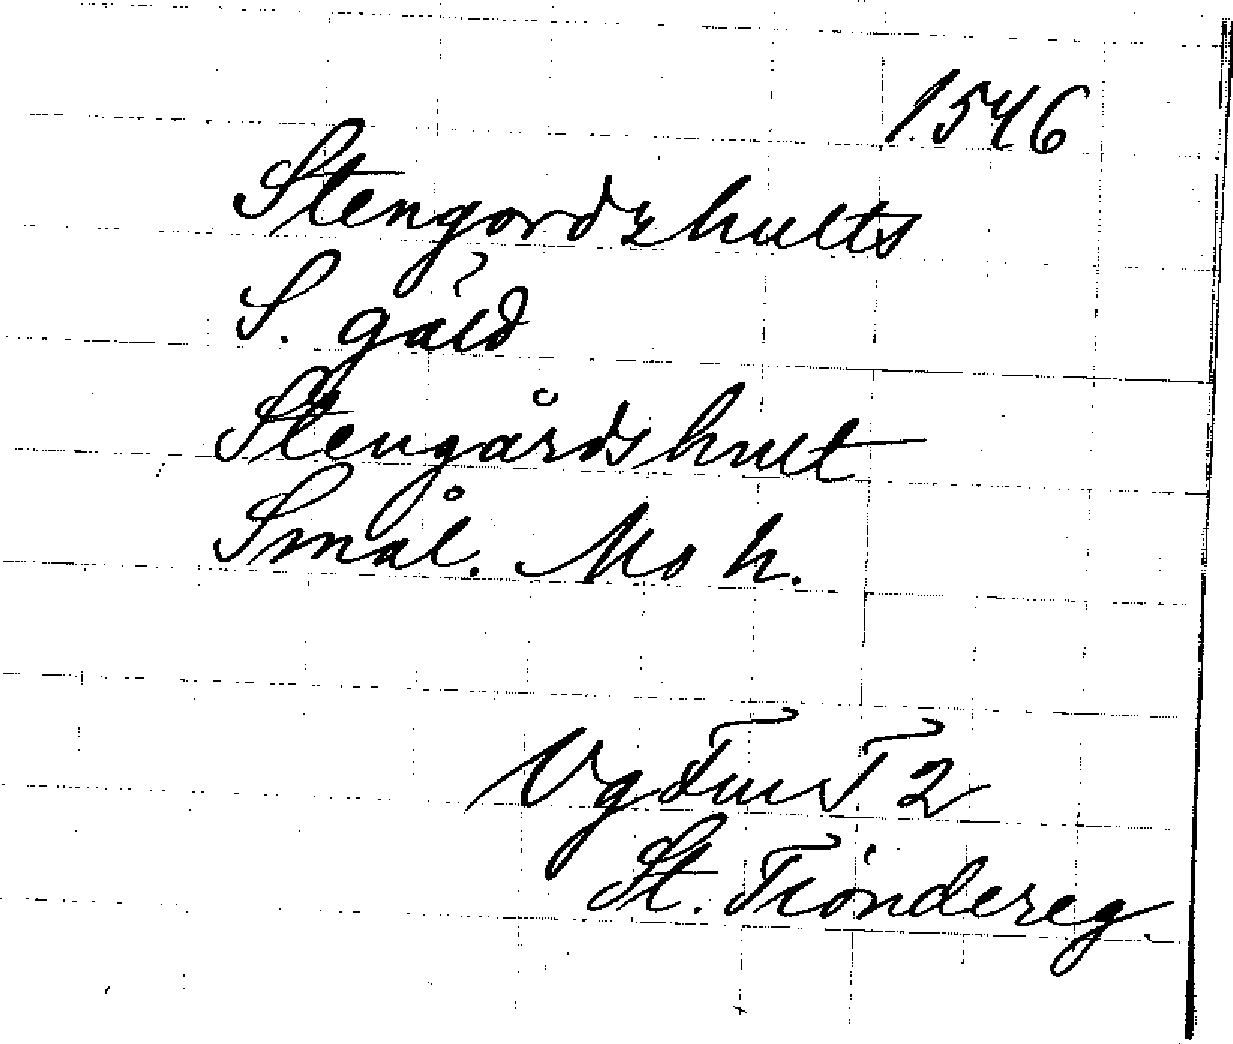 1546
Stengordzhults
S. gäld
Stengårdshult
Smål. Mo h.
Vg Fm T 2
St. Tiöndereg.